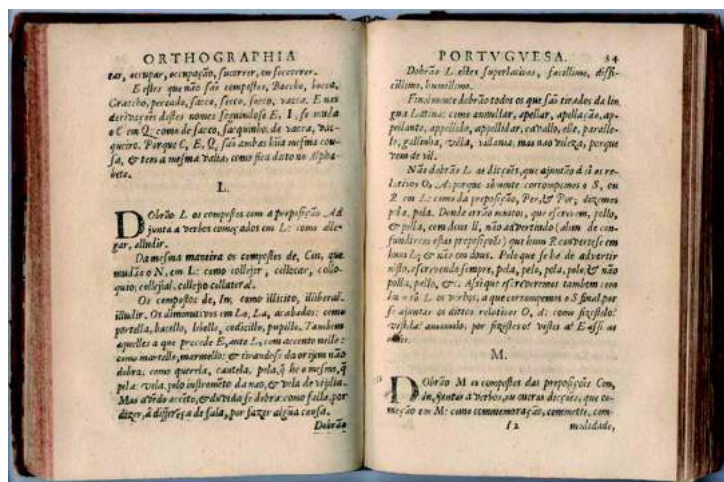 ORTHOGRAPHIA
tar, occupar, occupação, sucorrer, ou soccorrer.
E estes que não são compostos, Baccho, bocca,
Graccho, peccado, sacco, secco, socco, vacca. E nas
derivações destes nomes seguindose E, I, se muda
o C em Q: como de sacco, sacquinho: de vacca, vac-
queiro. Porque C, E, Q, são ambas hũa mesma cou-
sa, & tem a mesma valia: como fica dato no Alpha-
beto.
L.
DObrão L os compostos com a preposição Ad
junta a verbos começados em L: como alle-
gar, alludir.
Da mesma maneira os compostos de, Con, que
mudão o N, em L: como collejer, collocar, collo-
quio, collejial, collejio collateral.
Os compostos de, In, como illicito, illiberal.
illudir. Os diminutivos em Lo, La, acabados: como
portella, bacello, libello, codicillo, pupillo. Tambem
aquelles a que precede E, ante L, com accento nelle:
como martello, marmello: & tirandose da orijem não
dobra: como querela, cautela, pela, q̃ he o mesmo, q̃
pila: vela, pelo instromẽto da nao, & vela de vijilia.
Mas avẽdo accẽto, & duvida se dobra: como falla, por
dizer, á differẽça de sala, por fazer algũa cousa.
Dobrão
PORTVGVESA. 34
Dobrão L estes superlativos, facillimo, diffi-
cillimo, humillimo.
Finalmente dobrão todos os que são tirados da lin
gua Latina: como annullar, apellar, apellação, ap-
pellante, appellido, appellidar, cavallo, elle, paralle-
lo, gallinha, villa, villania: mas não vileza, porque
vem de vil.
Não dobrão L as dicções, que ajuntão a si os re-
lativos O, A: porque sómente corrompemos o S, ou
R em L: como da preposição, Per, & Por; dizemos
pela, pola. Donde errão muitos, que escrevem, pello,
& polla, com dous ll, não advertindo (alem de con-
fundirem estas preposições) que hum R converte se em
hum L; & não em dous. Pelo que se há de advertir
nisto, escrevendo sempre, pela, pelo, pola, polo; & não
polla, pello, &c. Assi que escreveremos tambem com
hum só L os verbos, a que corrompemos o S final por
se ajuntar os dittos relativos O, A: como fizestelo?
vestela? amamolo, por fizestes o? vestes a? E assi as
M.
DObrão M os compostos das preposições Con,
In, juntas a verbos, ou outras dicções, que co-
meção em M: como commemoração, commette, com-
I 2 modidade,